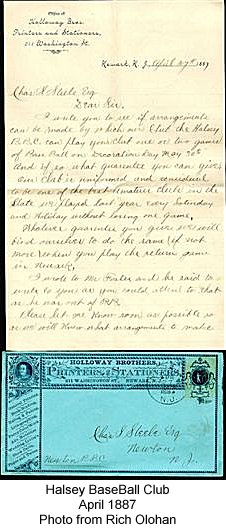 Office of
Holloway Bros.
Printers and Stationers,
211 Washington St.
Newark, N. J. April 27th 1887
Chas. N. Steele Esq
Dear Sir.
I write you to see if arrangements
can be made by which our Club the Halsey
B.B.C. can play your Club one or two games
of Base Ball on Decoration Day May 30th
And if so what guarantee you can give
our Club is uniformed and considered
to be one of the best amateur clubs in the
State we played last year every Saturday
and Holiday without losing one game.
Whatever guarantee you give we will
bind ourselves to do the same if not
more when you play the return game
in Newark.
I wrote to Mr and he said to
write to you as you could attend to that
as he was out of
Please let me know soon as possible so
as we will know what arrangements to make
HOLLOWAY BROTHERS,
PRINTERS & STATIONERS,
211 WASHINGTON ST. NEWARK, N.J.
Chas N Steele Esq
Newton
Newton B.B.C. N. J.
Halsey BaseBall Club
April 1887
Photo from Rich Olohan